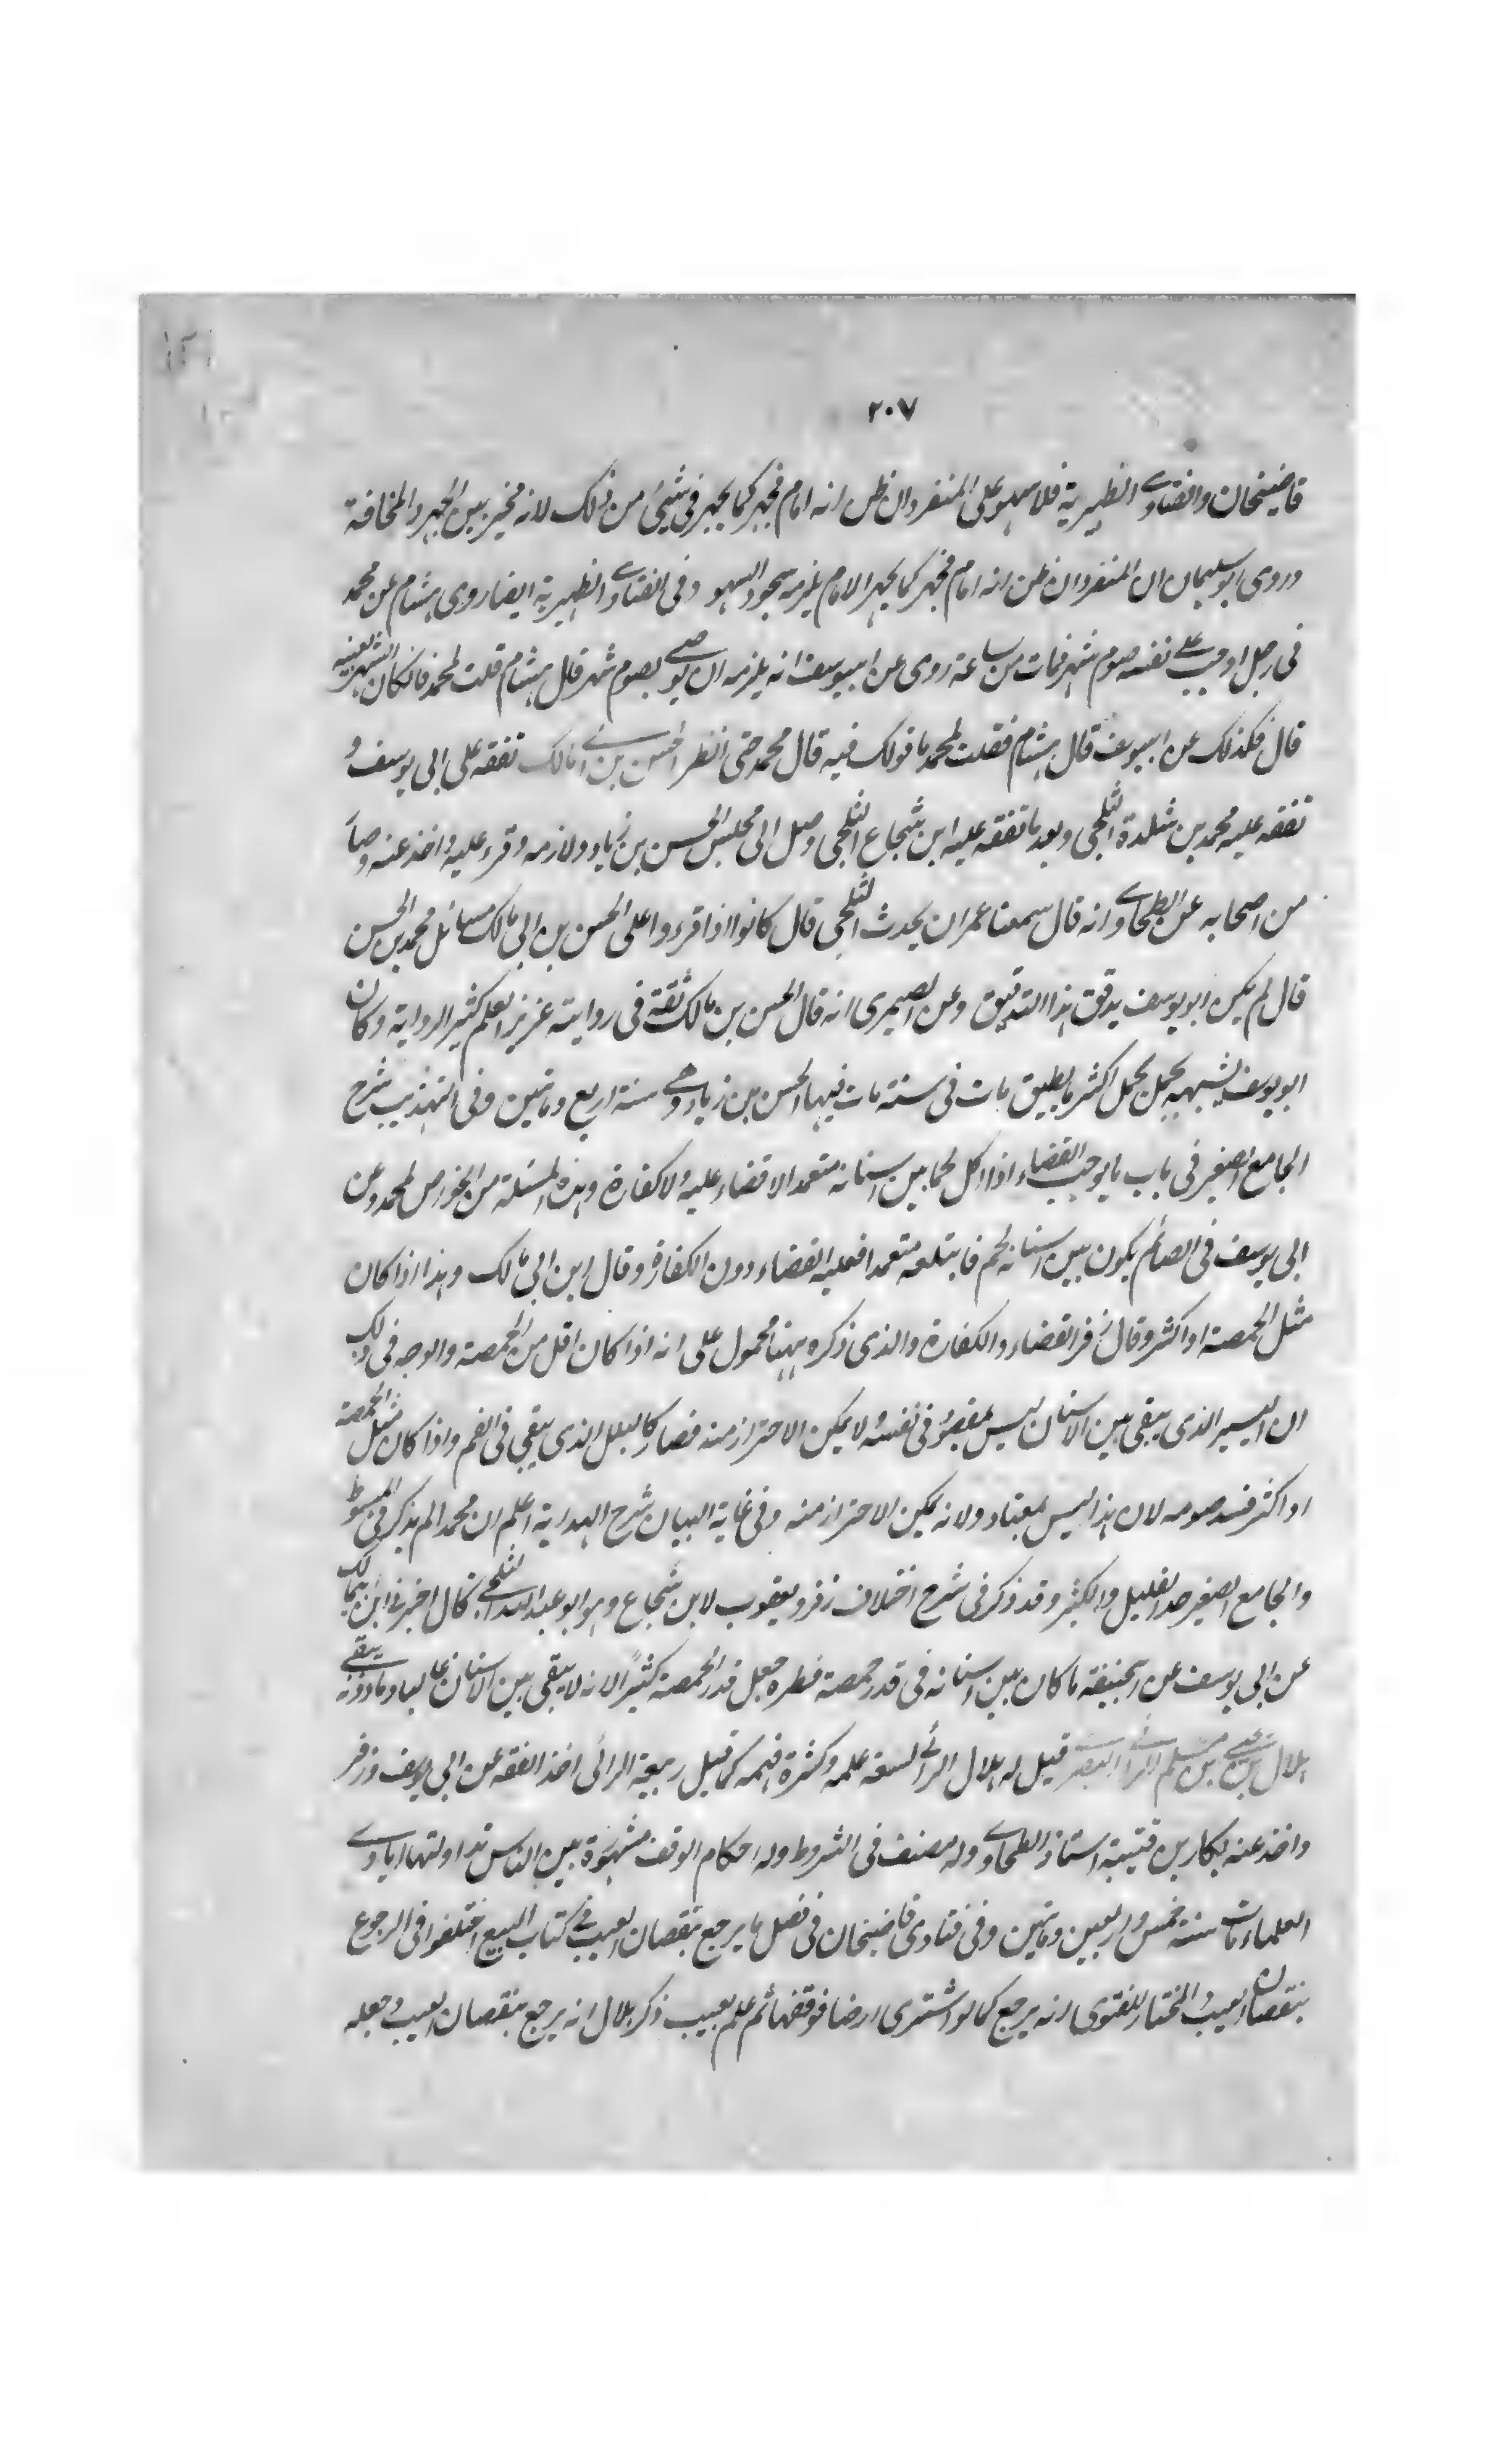 ٢٠٧
قاضيخان والفتاوى الظهيرية فلا سهو على المنفرد ان ظن انه امام فجهر كما يجهر في شيئ من ذلك لانه مخير بين الجهر والمخافتة
وروى ابو سليمان ان المنفرد ان ظن انه امام فجهر كما يجهر الامام يلزمه سجود السهو وفى الفتاوى الظهيرية ايضا روى هشام عن محمد
فى رجل اوجب على نفسه صوم شهر فمات من ساعة روى عن ابيوسف انه يلزمه ان يوصى بصوم شهر قال هشام قلت لمحمد فانكان الشهر بعينه
قال فكذلك عن ابيوسف قال هشام فقلت لمحمد ما قولك فيه قال محمد حتى انظر الحسن بن ابى مالك تفقه على ابى يوسف و
تفقه عليه محمد بن شجاع الثلجى وبعد ما تفقه عليه ابن شجاع الثلجى وصل الى مجلس الحسن بن زياد ولازمه وقرء عليه واخذ عنه وصار
من اصحابه عن الطحاوى انه قال سمعنا عمران يحدث الثلجى قال كانوا اذا قرءوا على الحسن بن ابى مالك مسائل محمد بن الحسن
قال لم يكن ابو يوسف يدقق هذا التدقيق وعن الصيمرى انه قال الحسن بن مالك ثقة فى روايته عزيز العلم كثير الرواية وكان
ابو يوسف يشبهه بجمل يحمل اكثر ما يطيق مات فى سنة مات فيها الحسن بن زياد وهى سنة اربع ومائتين وفى التهذيب شرح
الجامع الصغير فى باب ما يوجب القضاء اذا اكل لحما بين اسنانه متعمدا لا قضاء عليه ولا كفارة وهذه المسئلة من الخواص لمحمد وعن
ابى يوسف فى الصائم يكون بين اسنانه لحم فابتلعه متعمدا فعليه القضاء دون الكفارة وقال ابن ابى مالك وهذا اذا كان
مثل الحمصة او اكثر وقال زفر القضاء والكفارة والذى ذكره ههنا محمول على انه اذا كان اقل من الحمصة والوجه فى ذلك
ان اليسير الذى يبقى بين الاسنان ليس بمقصود فى نفسه ولا يمكن الاحتراز منه فصار كالبلل الذى يبقى فى الفم واذا كان مثل الحمصة
او اكثر فسد صومه لان هذا ليس بمعتاد ولانه يمكن الاحتراز منه وفى غاية البيان شرح الهداية اعلم ان محمدا لم يذكر فى المبسوط
والجامع الصغير حد القليل والكثير وقد ذكر فى شرح اختلاف زفر ويعقوب لابن شجاع وهو ابو عبد الله الثلجى قال اخبرنى ابن ابى مالك
عن ابى يوسف عن ابيحنيفة ما كان بين اسنانه فى قدر حمصة فطره جعل قدر الحمصة كثيرا لانه لا يبقى بين الاسنان غالبا وما دونه يبقى
هلال بن يحيى بن مسلم الرأى البصرى قيل له هلال الرأى لسعة علمه وكثرة فهمه كما قيل ربيعة الرائى اخذ الفقه عن ابى يوسف وزفر
واخذ عنه بكار بن قتيبة استاذ الطحاوى وله مصنف فى الشروط وله احكام الوقف مشهورة بين الناس تداولتها ايادى
العلماء مات سنة خمس واربعين ومائتين وفى فتاوى قاضيخان فى فصل ما يرجع بنقصان العيب فى كتاب البيع اختلفوا فى الرجوع
بنقصان العيب والمختار للفتوى انه يرجع كما لو اشترى ارضا فوقفها ثم علم بعيب ذكر هلال انه يرجع بنقصان العيب وجعله